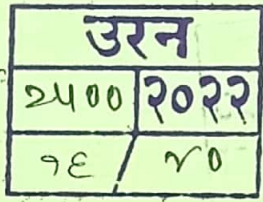 उरन
२५०० २०२२
१६ / ४०